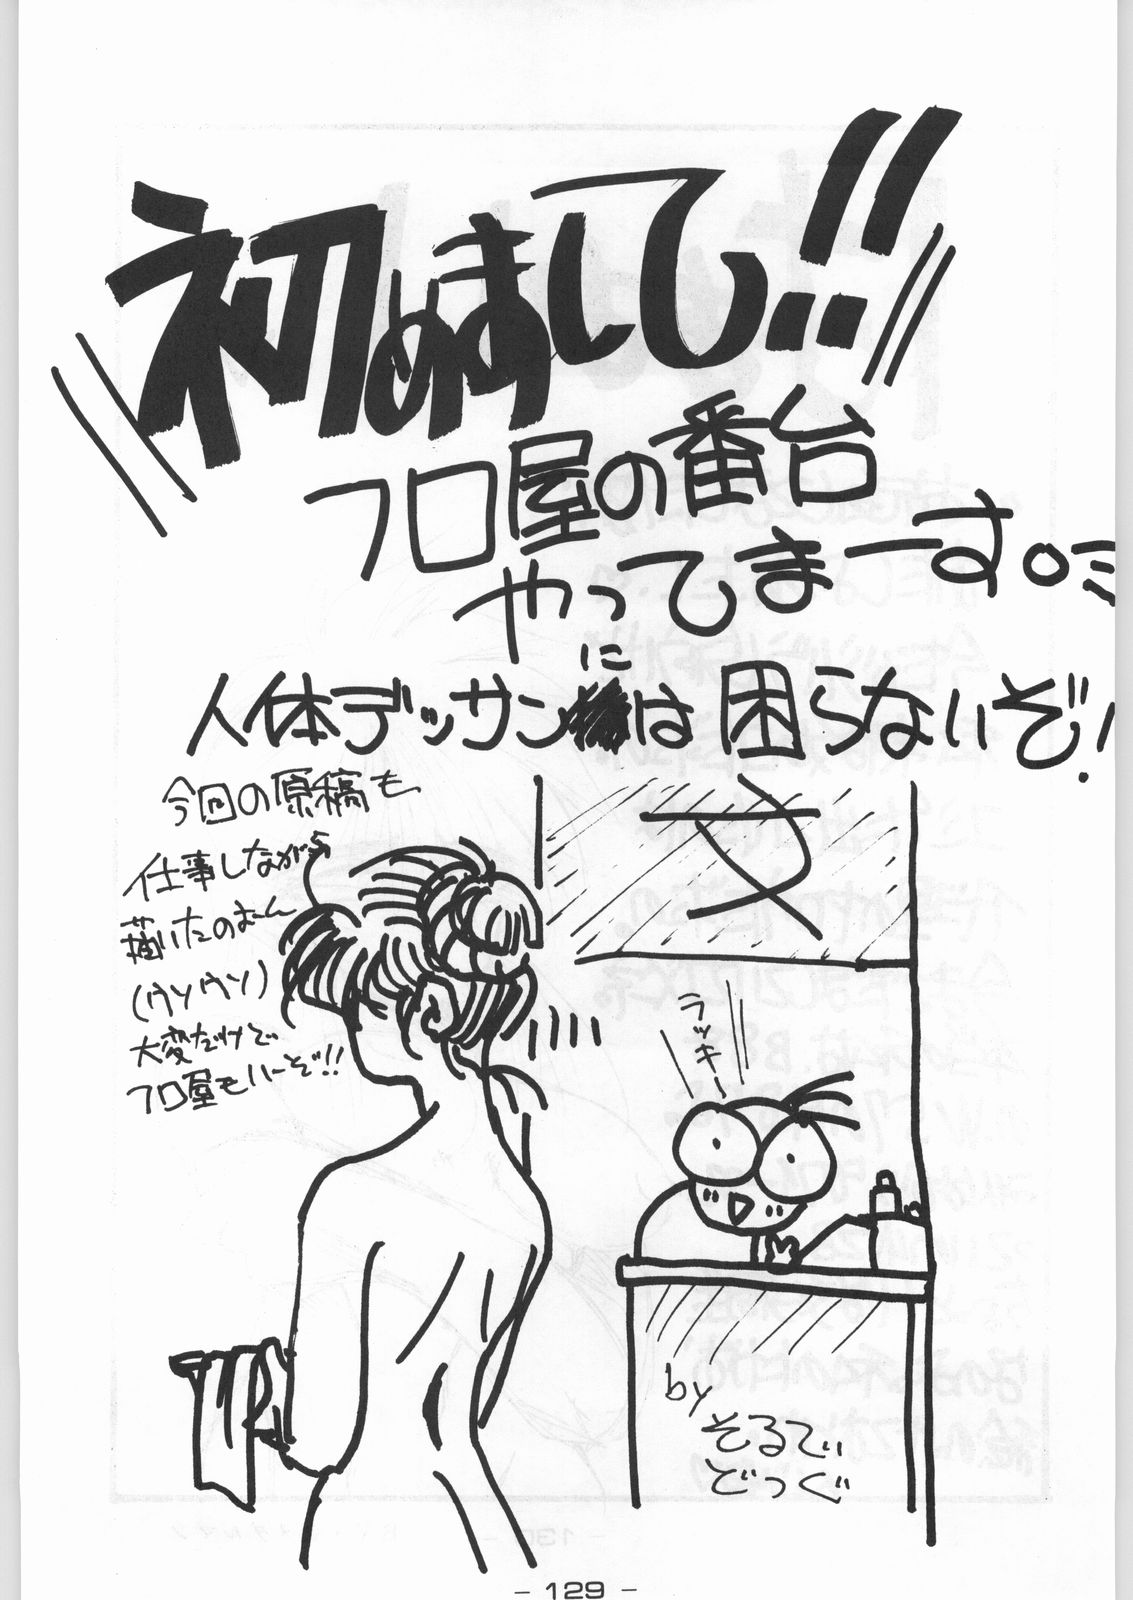 初めまして!!
フロ屋の番台
やってまーす。
に
人体デッサンは困らないぞ!
今回の原稿も
仕事しながら
描いたのおーん
(ウソウソ)
大変だけど
フロ屋もいーぞ!!
女
ラッキー
by
そるてぃ
どっぐ
- 129 -